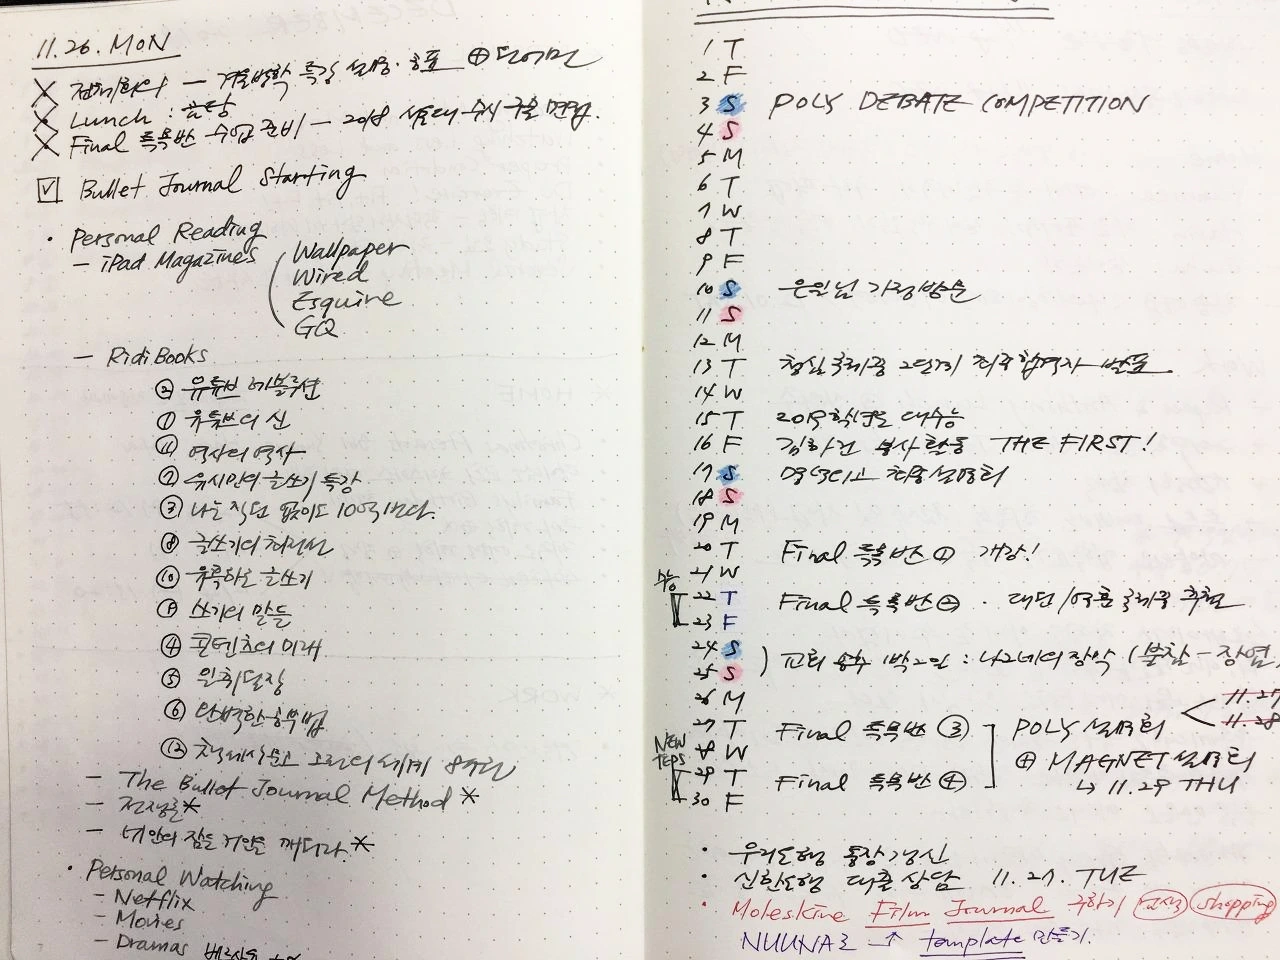 11.26. MON
전체회의 — 겨울방학 특강 설명·홍보 ⊕ 단어면
Lunch : 곰탕
Final 특목반 수업 준비 — 2018 서울대 수시 구술 면접.
Bullet Journal Starting
· Personal Reading
– iPad Magazines
Wallpaper
Wired
Esquire
GQ
– RidiBooks
유튜브 레볼루션
① 유튜브의 신
역사의 역사
유시민의 글쓰기 특강
③ 나는 직원 없이도 10억 번다.
⑧ 글쓰기의 최전선
⑩ 유혹하는 글쓰기
쓰기의 말들
④ 콘텐츠의 미래
⑤
⑥ 완벽한 공부법
⑫ 책 세계
– The Bullet Journal Method *
– 전쟁론 *
– 네 안의 잠든 거인을 깨워라. *
· Personal Watching
– Netflix
– Movies
– Dramas
1 T
2 F
3 S POLY DEBATE COMPETITION
4 S
5 M
6 T
7 W
8 T
9 F
10 S 은인님 가정방문
11 S
12 M
13 T 청심국제중 2단계 최종합격자 발표
14 W
15 T 2019학년도 대수능
16 F 김하건 봉사활동 THE FIRST!
17 S 입학설명회
18 S
19 M
20 T Final 특목반 ① 개강!
21 W
수능
22 T Final 특목반 ② · 대원/영훈 국제중 추첨
23 F
24 S ) 교회 1박2일 : 나그네의 장막 (
25 S
26 M
27 T Final 특목반 ③ POLY 설명회 11.27
11.28
NEW TEPS
28 W ⊕ MAGNET 설명회
29 T Final 특목반 ④ ↳ 11.29 THU
30 F
· 우리은행 통장갱신
· 신한은행 대출 상담 11.27. TUE
· Moleskine Film Journal 구하기 교보 shopping
NUUNA로 → template 만들기.